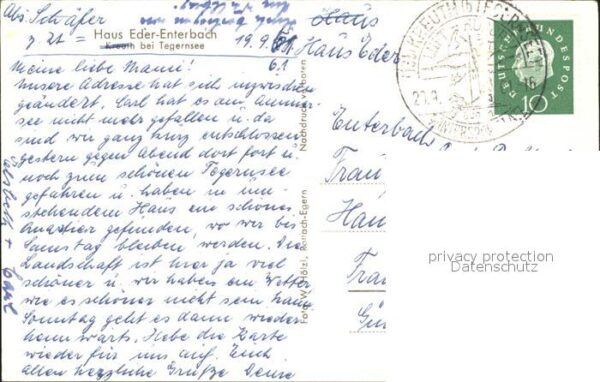 Abs. Schäfer
z. Zt =
Haus Eder-Enterbach
Kreuth bei Tegernsee
19.9.61
Haus
Haus Eder
Meine liebe Mami!
Unsere Adresse hat sich inzwischen
geändert. Carl hat es am Ammer-
see nicht mehr gefallen u. da
sind wir ganz kurz entschlossen
gestern gegen Abend dort fort u.
noch zum schönen Tegernsee
gefahren u. haben in um-
stehendem Haus ein schönes
Quartier gefunden, wo wir bis
Samstag bleiben werden. Die
Landschaft ist hier ja viel
schöner u. wir haben ein Wetter
wie es schöner nicht sein kann
Sonntag geht es dann wieder
heimwärts. Hebe die Karte
wieder für uns auf. Euch
allen herzliche Grüße Deine
herzlich + Carl
Nachdruck verboten
Foto W. Hölzl, Rottach-Egern
KREUTH
TEGERNSEE
WINTERSPORT
DEUTSCHE BUNDESPOST
10
Enterbach
Frau
Han
Frau
Gün
privacy protection
Datenschutz